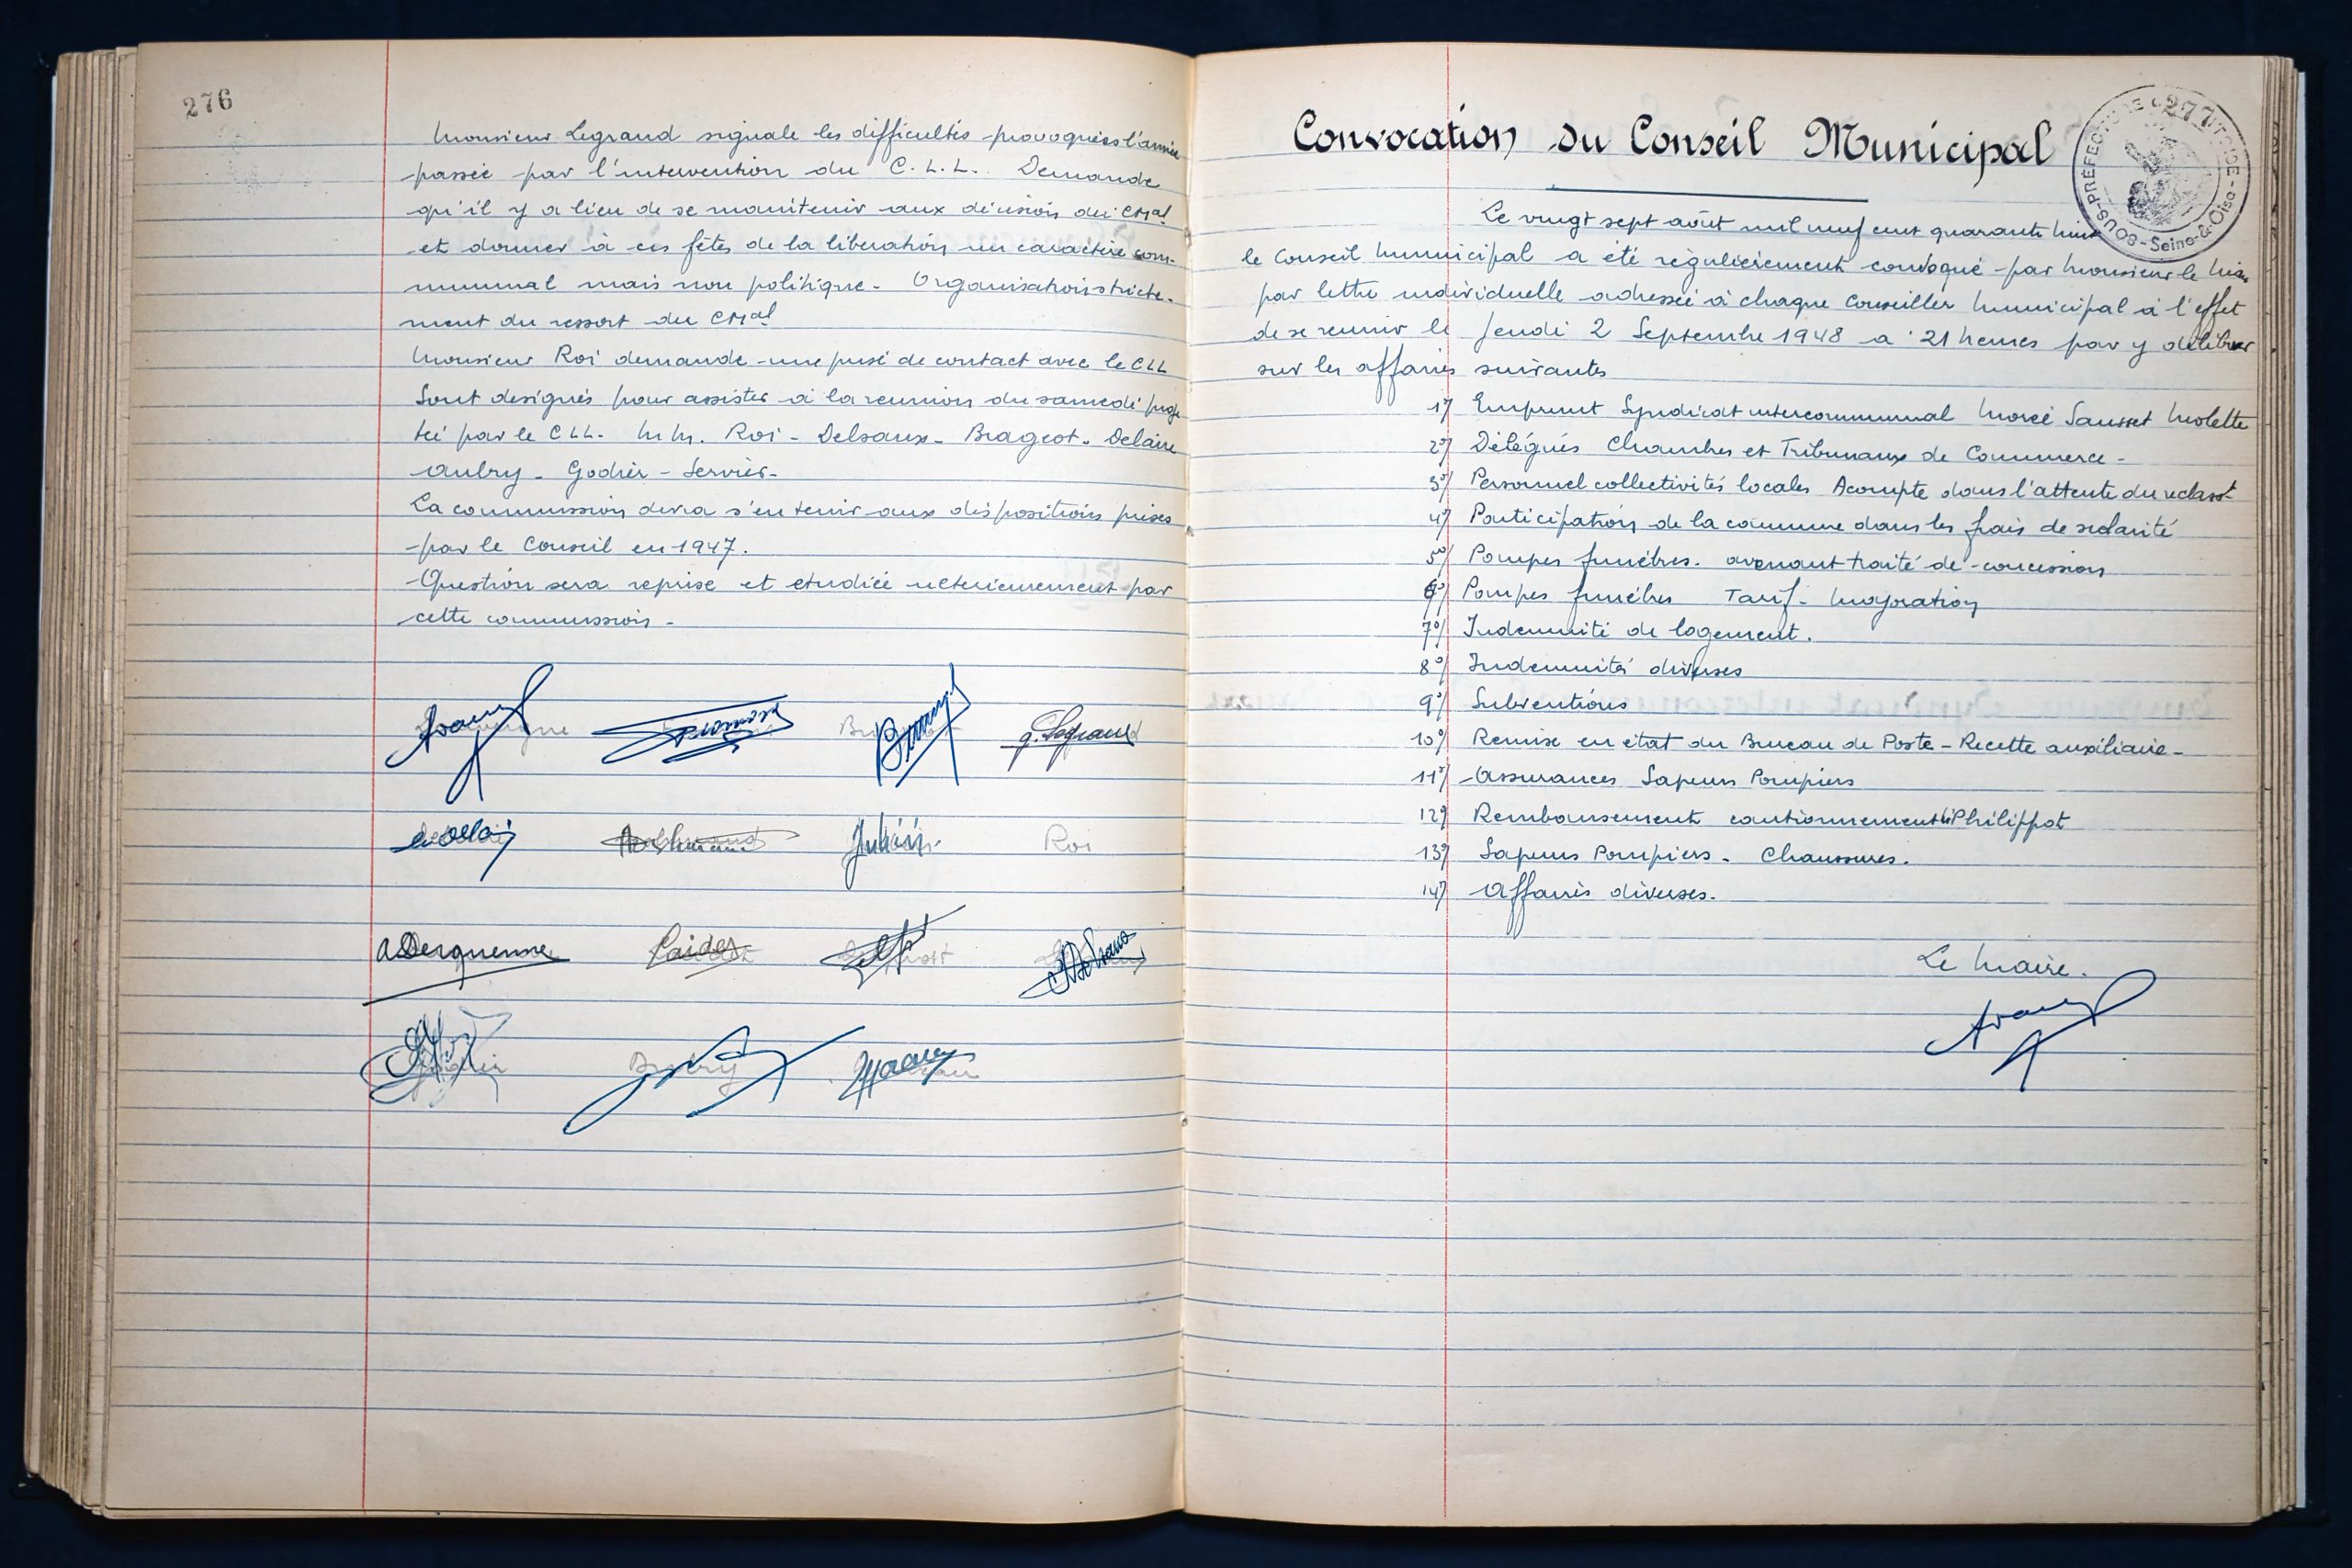 276
Monsieur Legrand signale les difficultés provoquées l'année
passée par l'intervention du C.L.L. Demande
qu'il y a lieu de se maintenir aux décisions du CMal
et donner à ces fêtes de la libération un caractère com-
munal mais non politique. Organisation stricte-
ment du ressort du CMal
Monsieur Roi demande une prise de contact avec le CLL
Sont designés pour assister à la reunion du samedi proje
teé par le CLL. M.M. Roi - Delsaux - Brageot - Delaire
Aubry - Godier - Serviès -
La commission devra s'en tenir aux dispositions prises
par le Conseil en 1947.
Question sera reprise et etudiée ulterieurement par
cette commission -
g. Legrand
Julien Roi
a Derquenne
277
SOUS-PRÉFECTURE Seine-&-Oise
Convocation du Conseil Municipal
Le vingt sept août mil neuf cent quarante huit
le Conseil Municipal a été régulièrement convoqué par Monsieur le
par lettre individuelle adressée à chaque Conseiller Municipal à l'effet
de se reunir le Jeudi 2 Septembre 1948 a 21 heures par y délibérer
sur les affaires suivantes
1°/ Emprunt Syndicat intercommunal Morée Sausset Molette
2°/ Délégués Chambres et Tribunaux de Commerce -
3°/ Personnel collectivités locales Acompte dans l'attente du reclasst
4°/ Participation de la commune dans les frais de scolarité
5°/ Pompes funèbres. avenant traité de concession
6°/ Pompes funèbres Tarif - Majoration
7°/ Indemnité de logement.
8°/ Indemnités diverses
9°/ Subventions
10°/ Remise en état du Bureau de Poste - Recette auxiliaire -
11°/ Assurances Sapeurs Pompiers
12°/ Remboursement cautionnement Philippot
13°/ Sapeurs Pompiers - Chaussures.
14°/ Affaires diverses.
Le Maire.